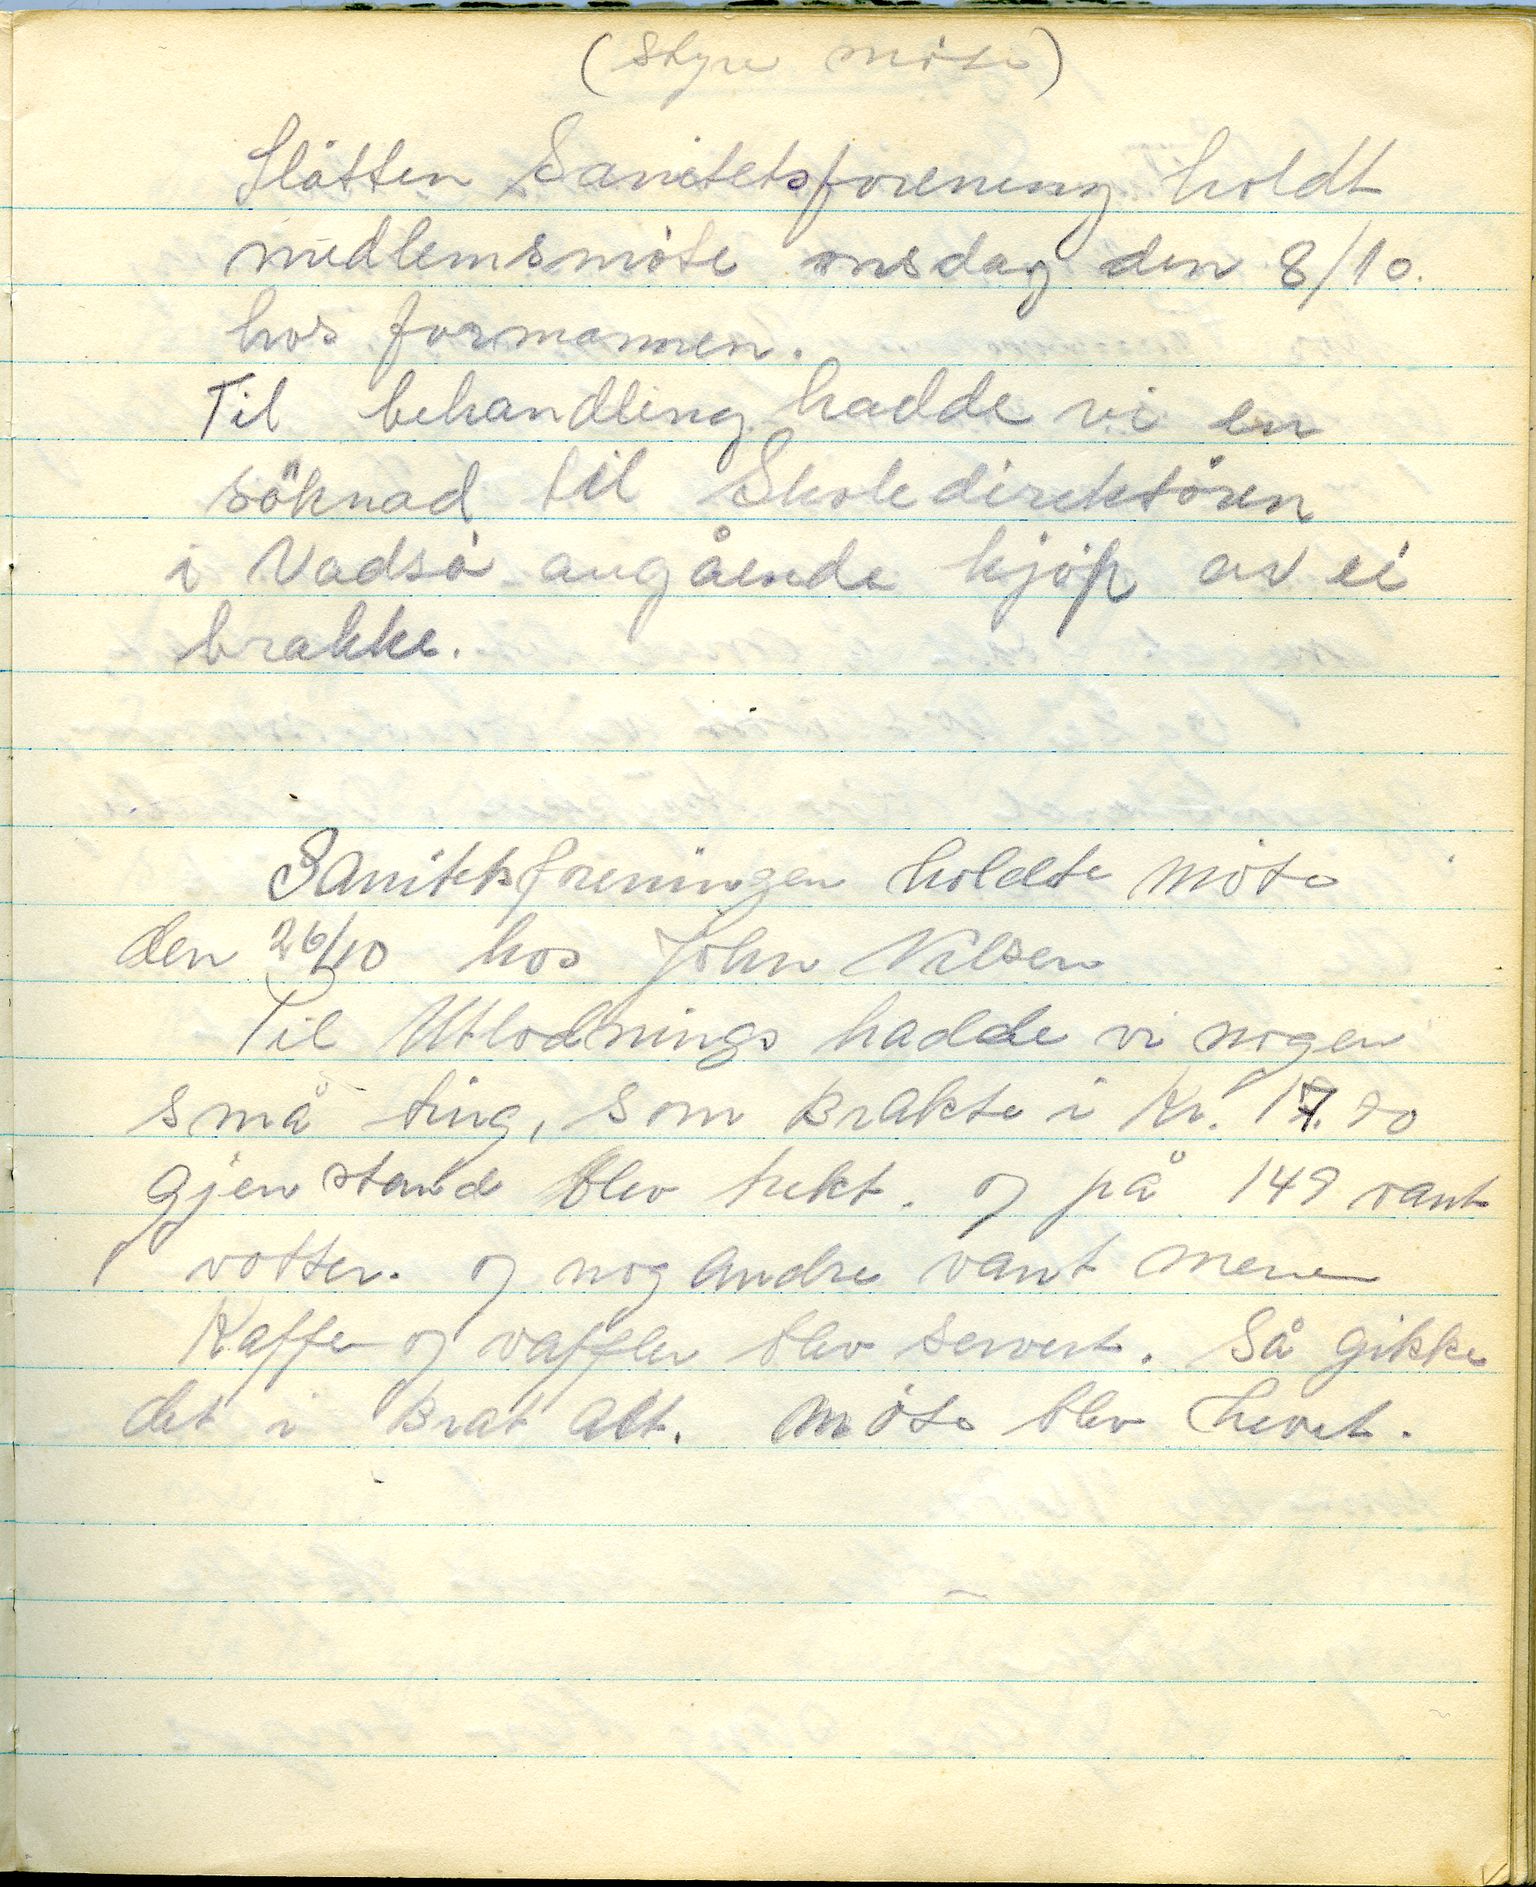 (styre møte)
Slåtten Sanitetsforening holdt
medlemsmøte onsdag den 8/10.
hos formannen.
Til behandling hadde vi en
söknad til Skoledirektøren
i Vadsø angående kjøp av ei
brakke.
Sanitetsforeningen holdte møte
den 26/10 hos John Nilsen
Til Utlodnings hadde vi nogen
små ting, som Brakte i Kr.
gjenstand blev trekt. og på 149 vant
1 votter. og nog andre vant mere
Kaffe og vaffler blev servert. Så gikke
det i Brat alt. Møte blev hevet.